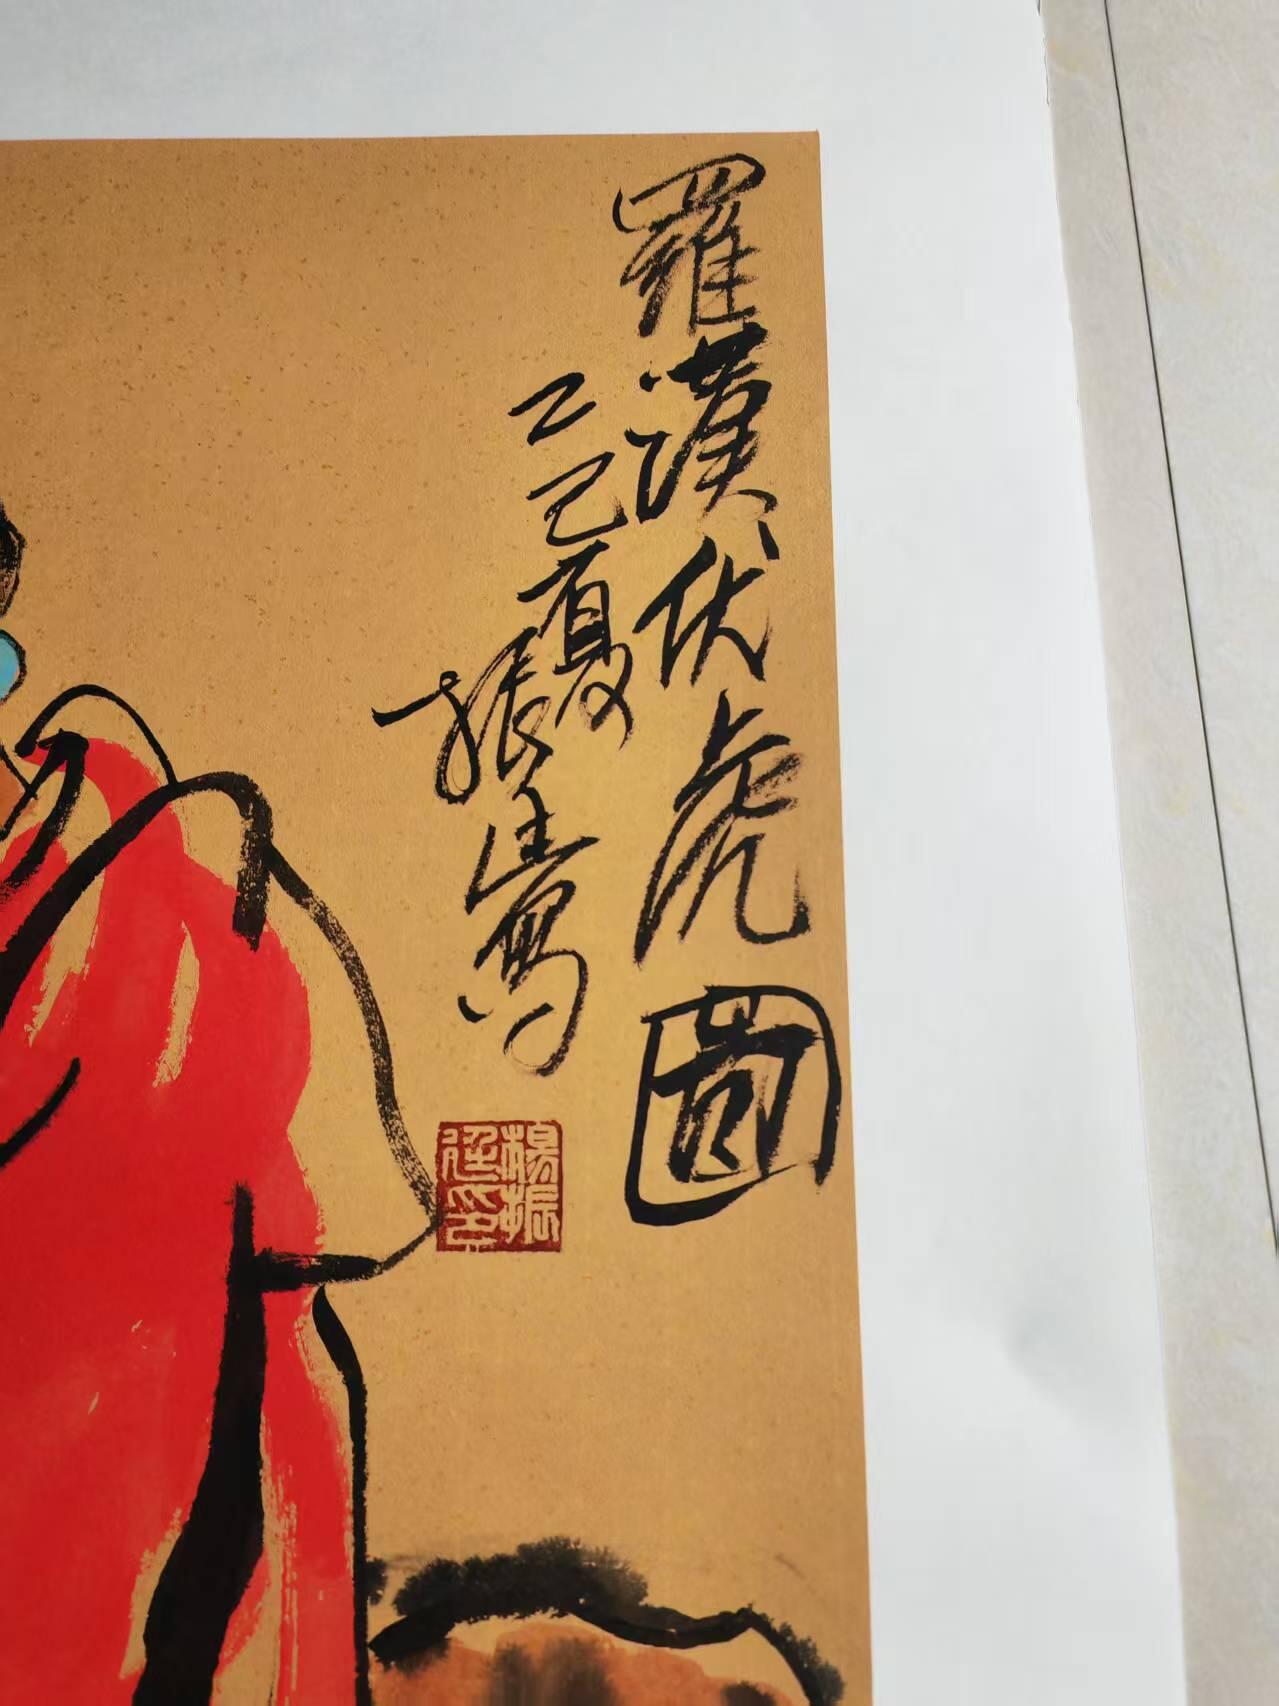 羅漢伏虎圖
乙巳夏
振廷寫
楊振
廷印